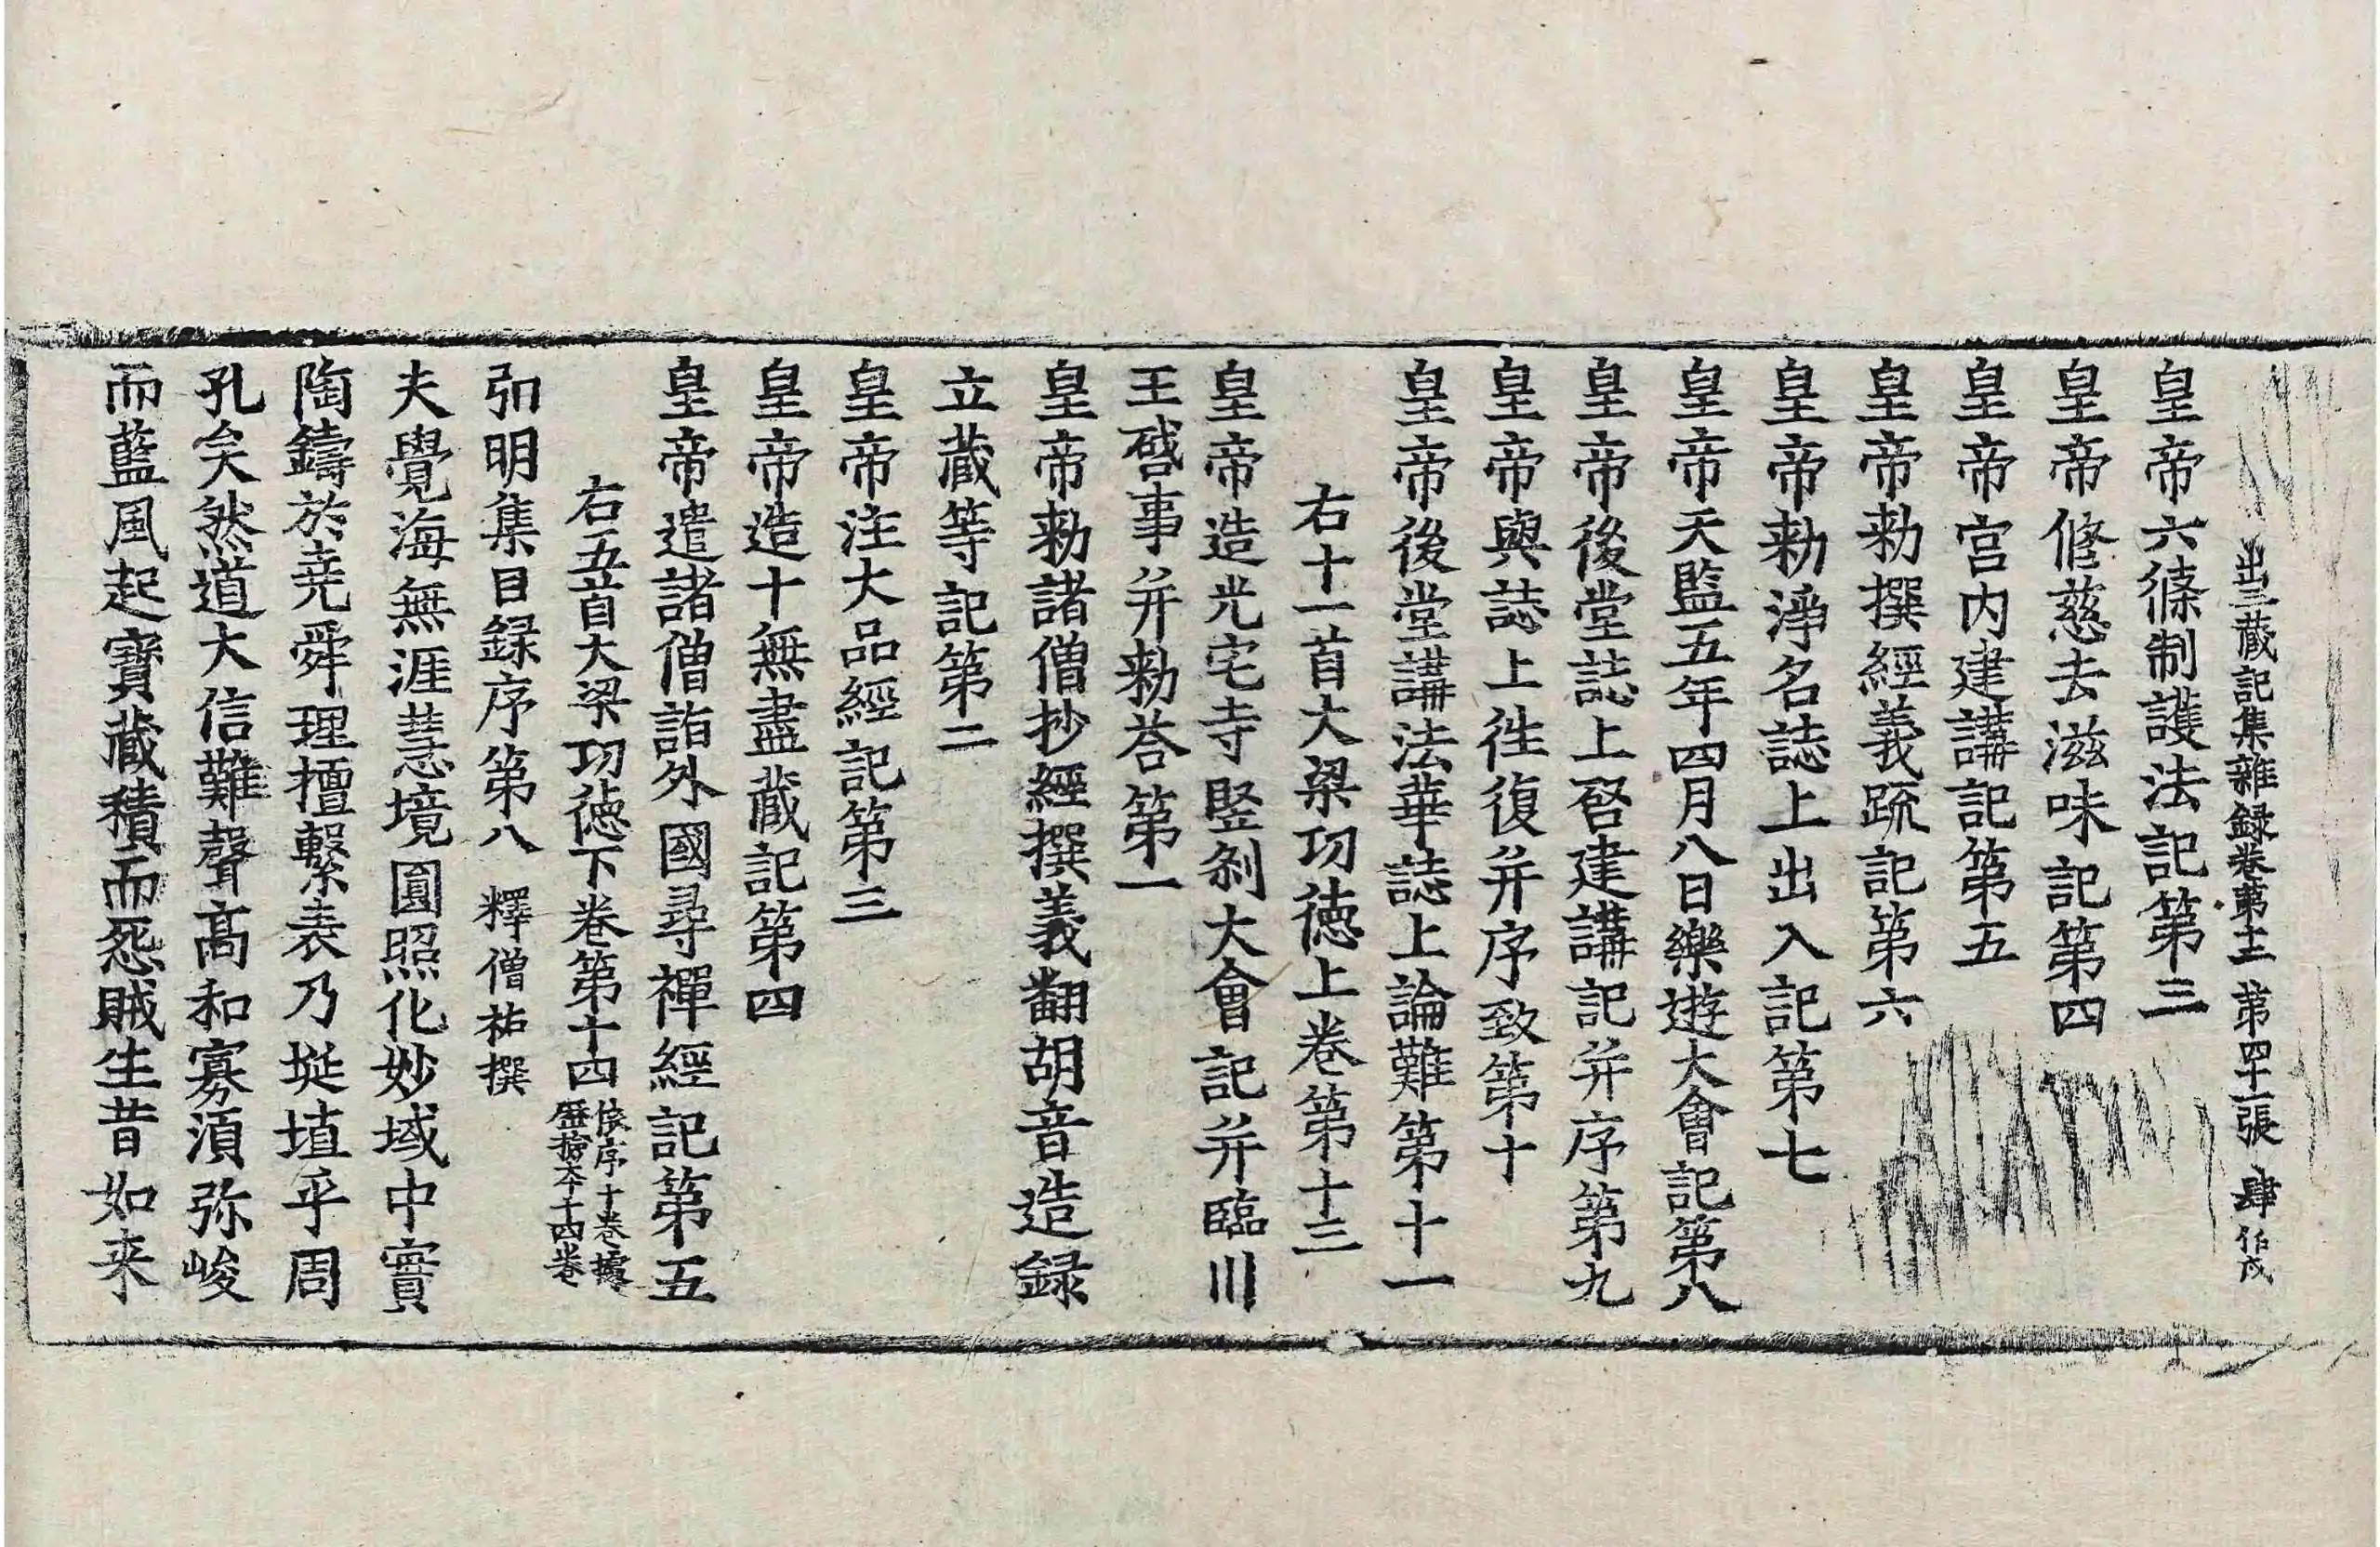 出三藏記集雜録卷第十二 第四十一張 肆伯戍
皇帝六條制護法記第三
皇帝修慈去滋味記第四
皇帝宫内建講記第五
皇帝勑撰經義疏記第六
皇帝勑淨名誌上出入記第七
皇帝天監五年四月八日樂遊大會記第八
皇帝後堂誌上啓建講記并序第九
皇帝與誌上往復并序致第十
皇帝後堂講法華誌上論難第十一
右十一首大梁功德上卷第十三
皇帝造光宅寺竪剎大會記并臨川
王啓事并勑荅第一
皇帝勑諸僧抄經撰義翻胡音造録
立藏等記第二
皇帝注大品經記第三
皇帝造十無盡藏記第四
皇帝遣諸僧詣外國尋禪經記第五
右五首大梁功德下卷第十四 依序十卷據歷撿本十四卷
弘明集目録序第八 釋僧祐撰
夫覺海無涯慧境圓照化妙域中實
陶鑄於堯舜理擅繫表乃埏埴乎周
孔矣然道大信難聲髙和寡湏弥峻
而藍風起寳藏積而怨賊生昔如来